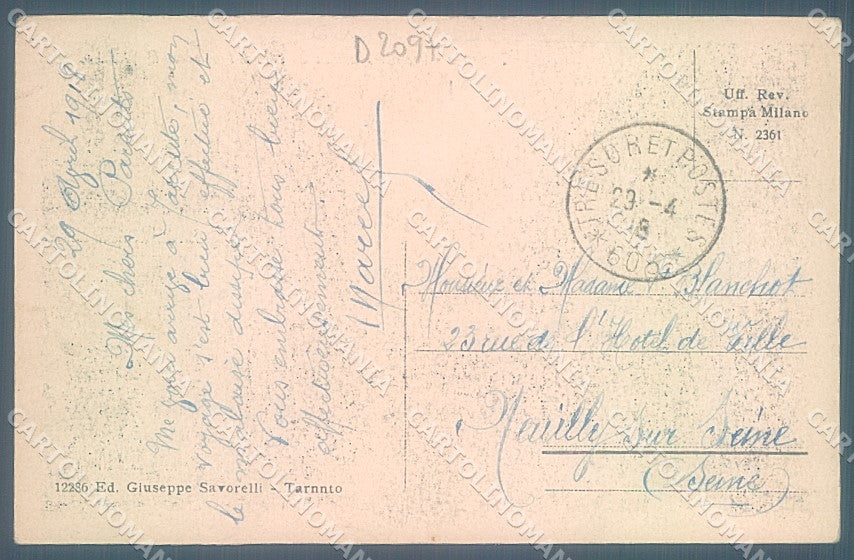 D 2097
Uff. Rev.
Stampa Milano
N. 2361
TRESOR ET POSTES
29 -4
18
* 606 *
29 Avril 1918
Mes chers Parents
Me voici arrivé à Tarente, mon
voyage s'est bien effectué et
le malaise dissipé
Vous embrasse tous bien
affectueusement
Marcel
Monsieur et Madame Blanchot
23 rue de l'Hotel de Ville
Neuilly sur Seine
(Seine)
12286 Ed. Giuseppe Savorelli - Tarnnto
CARTOLINOMANIA